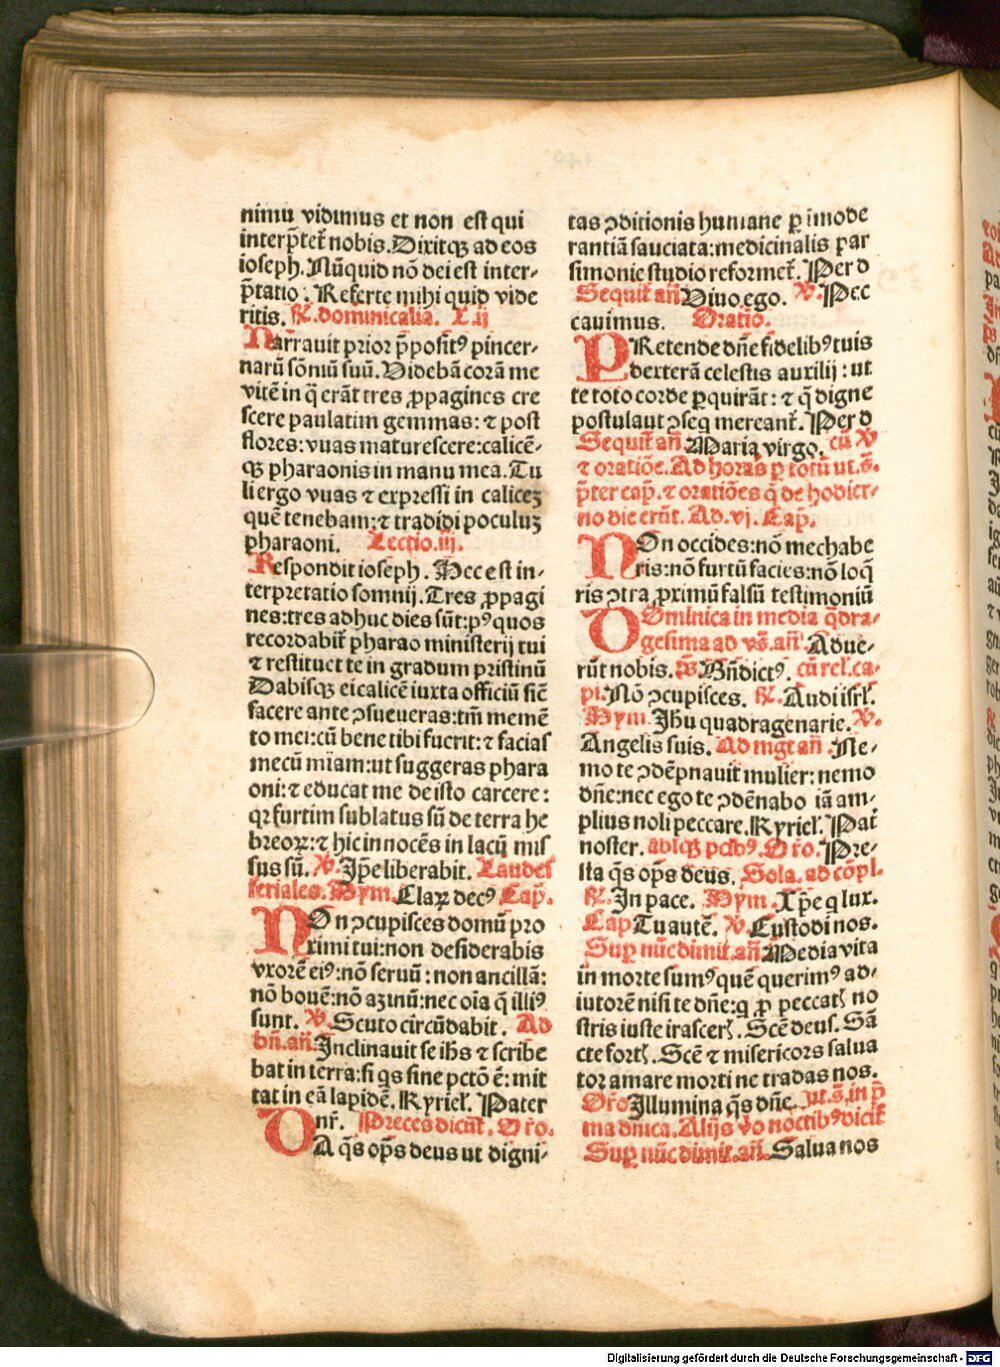 nimũ vidimus et non est qui
interp̃tet̃ nobis. Dixitqꝫ ad eos
ioseph. Nũquid nõ dei est inter-
p̃tatio. Referte mihi quid vide
ritis. ꝶ. dominicalia. L. ij
Narrauit prior p̃posit⁹ pincer-
narũ sõniũ suũ. Videbã corã me
vitẽ in q̃ erãt tres ꝓpagines cre
scere paulatim gemmas: ⁊ post
flores: vuas maturescere: calicẽ-
qꝫ pharaonis in manu mea. Tu
li ergo vuas ⁊ expressi in caliceꝫ
quẽ tenebam: ⁊ tradidi poculuꝫ
pharaoni. Lectio. iij.
Respondit ioseph. Hec est in-
terpretatio somnij. Tres ꝓpagi
nes: tres adhuc dies sũt: p⁹ quos
recordabit̃ pharao ministerij tui
⁊ restituet te in gradum pristinũ
Dabisqꝫ ei calicẽ iuxta officiũ siẽ
facere ante ꝯsueueras: tm̃ memẽ
to mei: cũ bene tibi fuerit: ⁊ facias
mecũ mĩam: ut suggeras phara
oni: ⁊ educat me de isto carcere:
qꝛ furtim sublatus sũ de terra he
breoꝝ: ⁊ hic innocẽs in lacũ mis
sus sũ. ℣. Ip̃e liberabit. Laudes
feriales. Hym. Claꝝ dec⁹ Cap̃.
NOn ꝯcupisces domũ pro
ximi tui: non desiderabis
vxorẽ ei⁹: nõ seruũ: non ancillã:
nõ bouẽ: nõ azinũ: nec oĩa q̃ illi⁹
sunt. ℣. Scuto circũdabit. Ad
bñ. añ. Inclinauit se ihs ⁊ scribe
bat in terra: si qs sine pctõ ẽ: mit
tat in eã lapidẽ. Kyriel̃. Pater
nr̃. Preces dicũt̃. Or̃o.
DA q̃s op̃s deus ut digni-
tas ꝯditionis humane ꝑ imode
rantiã sauciata: medicinalis par
simonie studio reformet̃. Per d
Sequit̃ añ Viuo ego. ℣. Pec
cauimus. Oratio.
PRetende dñe fidelib⁹ tuis
dexterã celestis auxilij: ut
te toto corde ꝑquirãt: ⁊ q̃ digne
postulaut ꝯseq mereant̃. Per d
Sequit̃ añ Maria virgo. cũ ℣
⁊ oratiõe. Ad horas ꝑ totũ ut. s̃.
p̃ter cap̃. ⁊ oratiões q̃ de hodier-
no die erũt. Ad. vj. Cap̃.
NOn occides: nõ mechabe
ris: nõ furtũ facies: nõ loq̃
ris ꝯtra ꝓximũ falsũ testimoniũ
DOminica in media q̃dra-
gesima ad vs̃. añ. Adue-
rũt nobis. p̃s Bñdict⁹. cũ rel̃. ca-
pi. Nõ ꝯcupisces. ꝶ. Audi isrl̃.
Hym. Ihũ quadragenarie. ℣.
Angelis suis. Ad mgt̃ añ. Ne-
mo te ꝯdẽpnauit mulier: nemo
dñe: nec ego te ꝯdẽnabo iã am-
plius noli peccare. Kyriel̃. Pat̃
noster. absqꝫ pctib⁹. Or̃o. Pre-
sta q̃s op̃s deus. Sola. ad cõpl.
ꝶ. In pace. Hym. Xp̃e q lux.
Cap Tu autẽ. ℣. Custodi nos.
Suꝑ nũc dimit̃. añ Media vita
in morte sum⁹ quẽ querim⁹ ad-
iutorẽ nisi te dñe: q ꝓ peccatꝭ no
stris iuste irascerꝭ. Scẽ deus. Sã
cte fortꝭ. Scẽ ⁊ misericors salua
tor amare morti ne tradas nos.
Or̃o Illumina q̃s dñe. ut. s̃. in p̃
ma dñica. Alijs ṽo noctib⁹ dicit̃
Suꝑ nũc dimit̃. añ. Salua nos
Digitalisierung gefördert durch die Deutsche Forschungsgemeinschaft - DFG